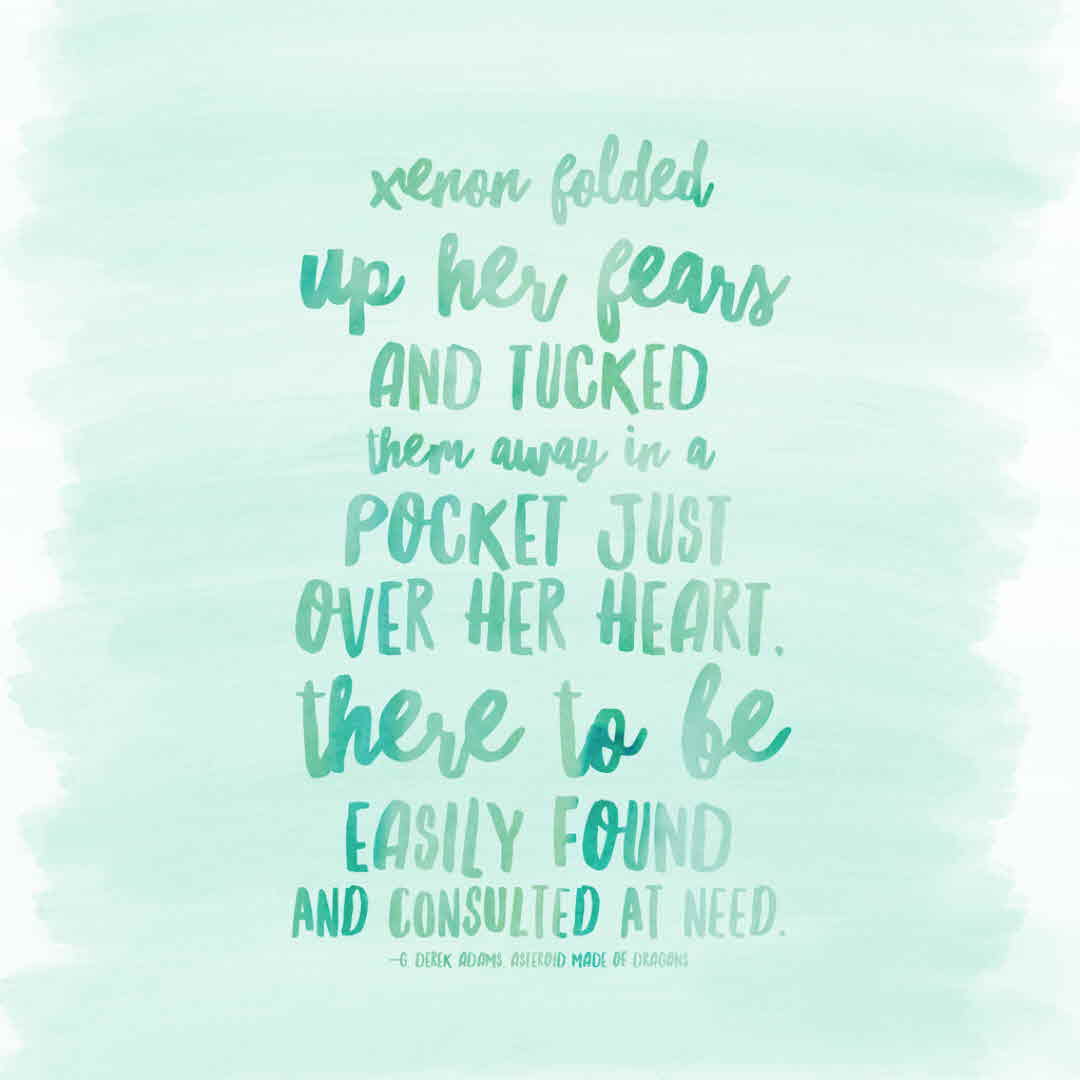 xenon folded
up her fears
AND TUCKED
them away in a
POCKET JUST
OVER HER HEART.
there to be
EASILY FOUND
AND CONSULTED AT NEED.
—G. DEREK ADAMS, ASTEROID MADE OF DRAGONS